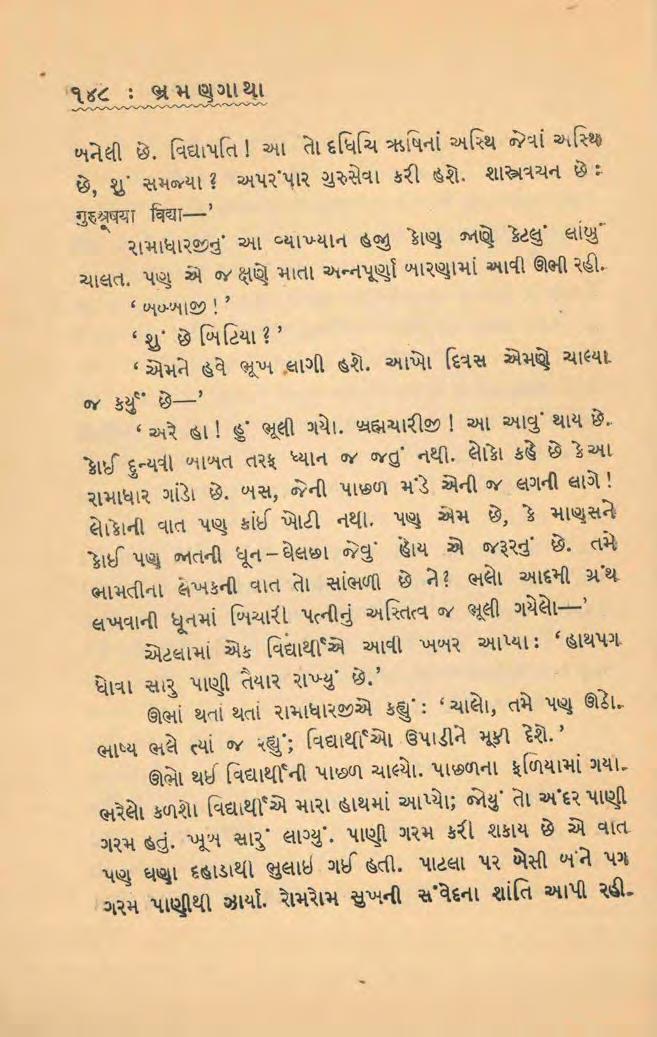 ૧૪૮ : ભ્રમણગાથા
બનેલી છે. વિદ્યાપતિ! આ તો દધિચિ ઋષિનાં અસ્થિ જેવાં અસ્થિ
છે, શું સમજ્યા? અપરંપાર ગુરુસેવા કરી હશે. શાસ્ત્રવચન છે :
गुरुश्रूषया विद्या—’
રામાધારજીનું આ વ્યાખ્યાન હજુ કોણ જાણે કેટલું લાંબું
ચાલત. પણ એ જ ક્ષણે માતા અન્નપૂર્ણા બારણામાં આવી ઊભી રહી.
‘બબ્બાજી!’
‘શું છે બિટિયા?’
‘એમને હવે ભૂખ લાગી હશે. આખો દિવસ એમણે ચાલ્યા
જ કર્યું છે—’
‘અરે હા! હું ભૂલી ગયો. બ્રહ્મચારીજી! આ આવું થાય છે.
કોઈ દુન્યવી બાબત તરફ ધ્યાન જ જતું નથી. લોકો કહે છે કે આ
રામાધાર ગાંડો છે. બસ, જેની પાછળ મંડે એની જ લગની લાગે!
લોકોની વાત પણ કાંઈ ખોટી નથી. પણ એમ છે, કે માણસને
કોઈ પણ જાતની ધૂન–ઘેલછા જેવું હોય એ જરૂરનું છે. તમે
ભામતીના લેખકની વાત તો સાંભળી છે ને? ભલો આદમી ગ્રંથ
લખવાની ધૂનમાં બિચારી પત્નીનું અસ્તિત્વ જ ભૂલી ગયેલો—’
એટલામાં એક વિદ્યાર્થીએ આવી ખબર આપ્યા: ‘હાથપગ
ધોવા સારુ પાણી તૈયાર રાખ્યું છે.’
ઊભાં થતાં થતાં રામાધારજીએ કહ્યું: ‘ચાલો, તમે પણ ઊઠો.
ભાષ્ય ભલે ત્યાં જ રહ્યું; વિદ્યાર્થીઓ ઉપાડીને મૂકી દેશે.’
ઊભો થઈ વિદ્યાર્થીની પાછળ ચાલ્યો. પાછળના ફળિયામાં ગયા.
ભરેલો કળશો વિદ્યાર્થીએ મારા હાથમાં આપ્યો; જોયું તો અંદર પાણી
ગરમ હતું. ખૂબ સારું લાગ્યું. પાણી ગરમ કરી શકાય છે એ વાત
પણ ઘણા દહાડાથી ભુલાઈ ગઈ હતી. પાટલા પર બેસી બંને પગ
ગરમ પાણીથી ઝાર્યા. રોમરોમ સુખની સંવેદના શાંતિ આપી રહી.